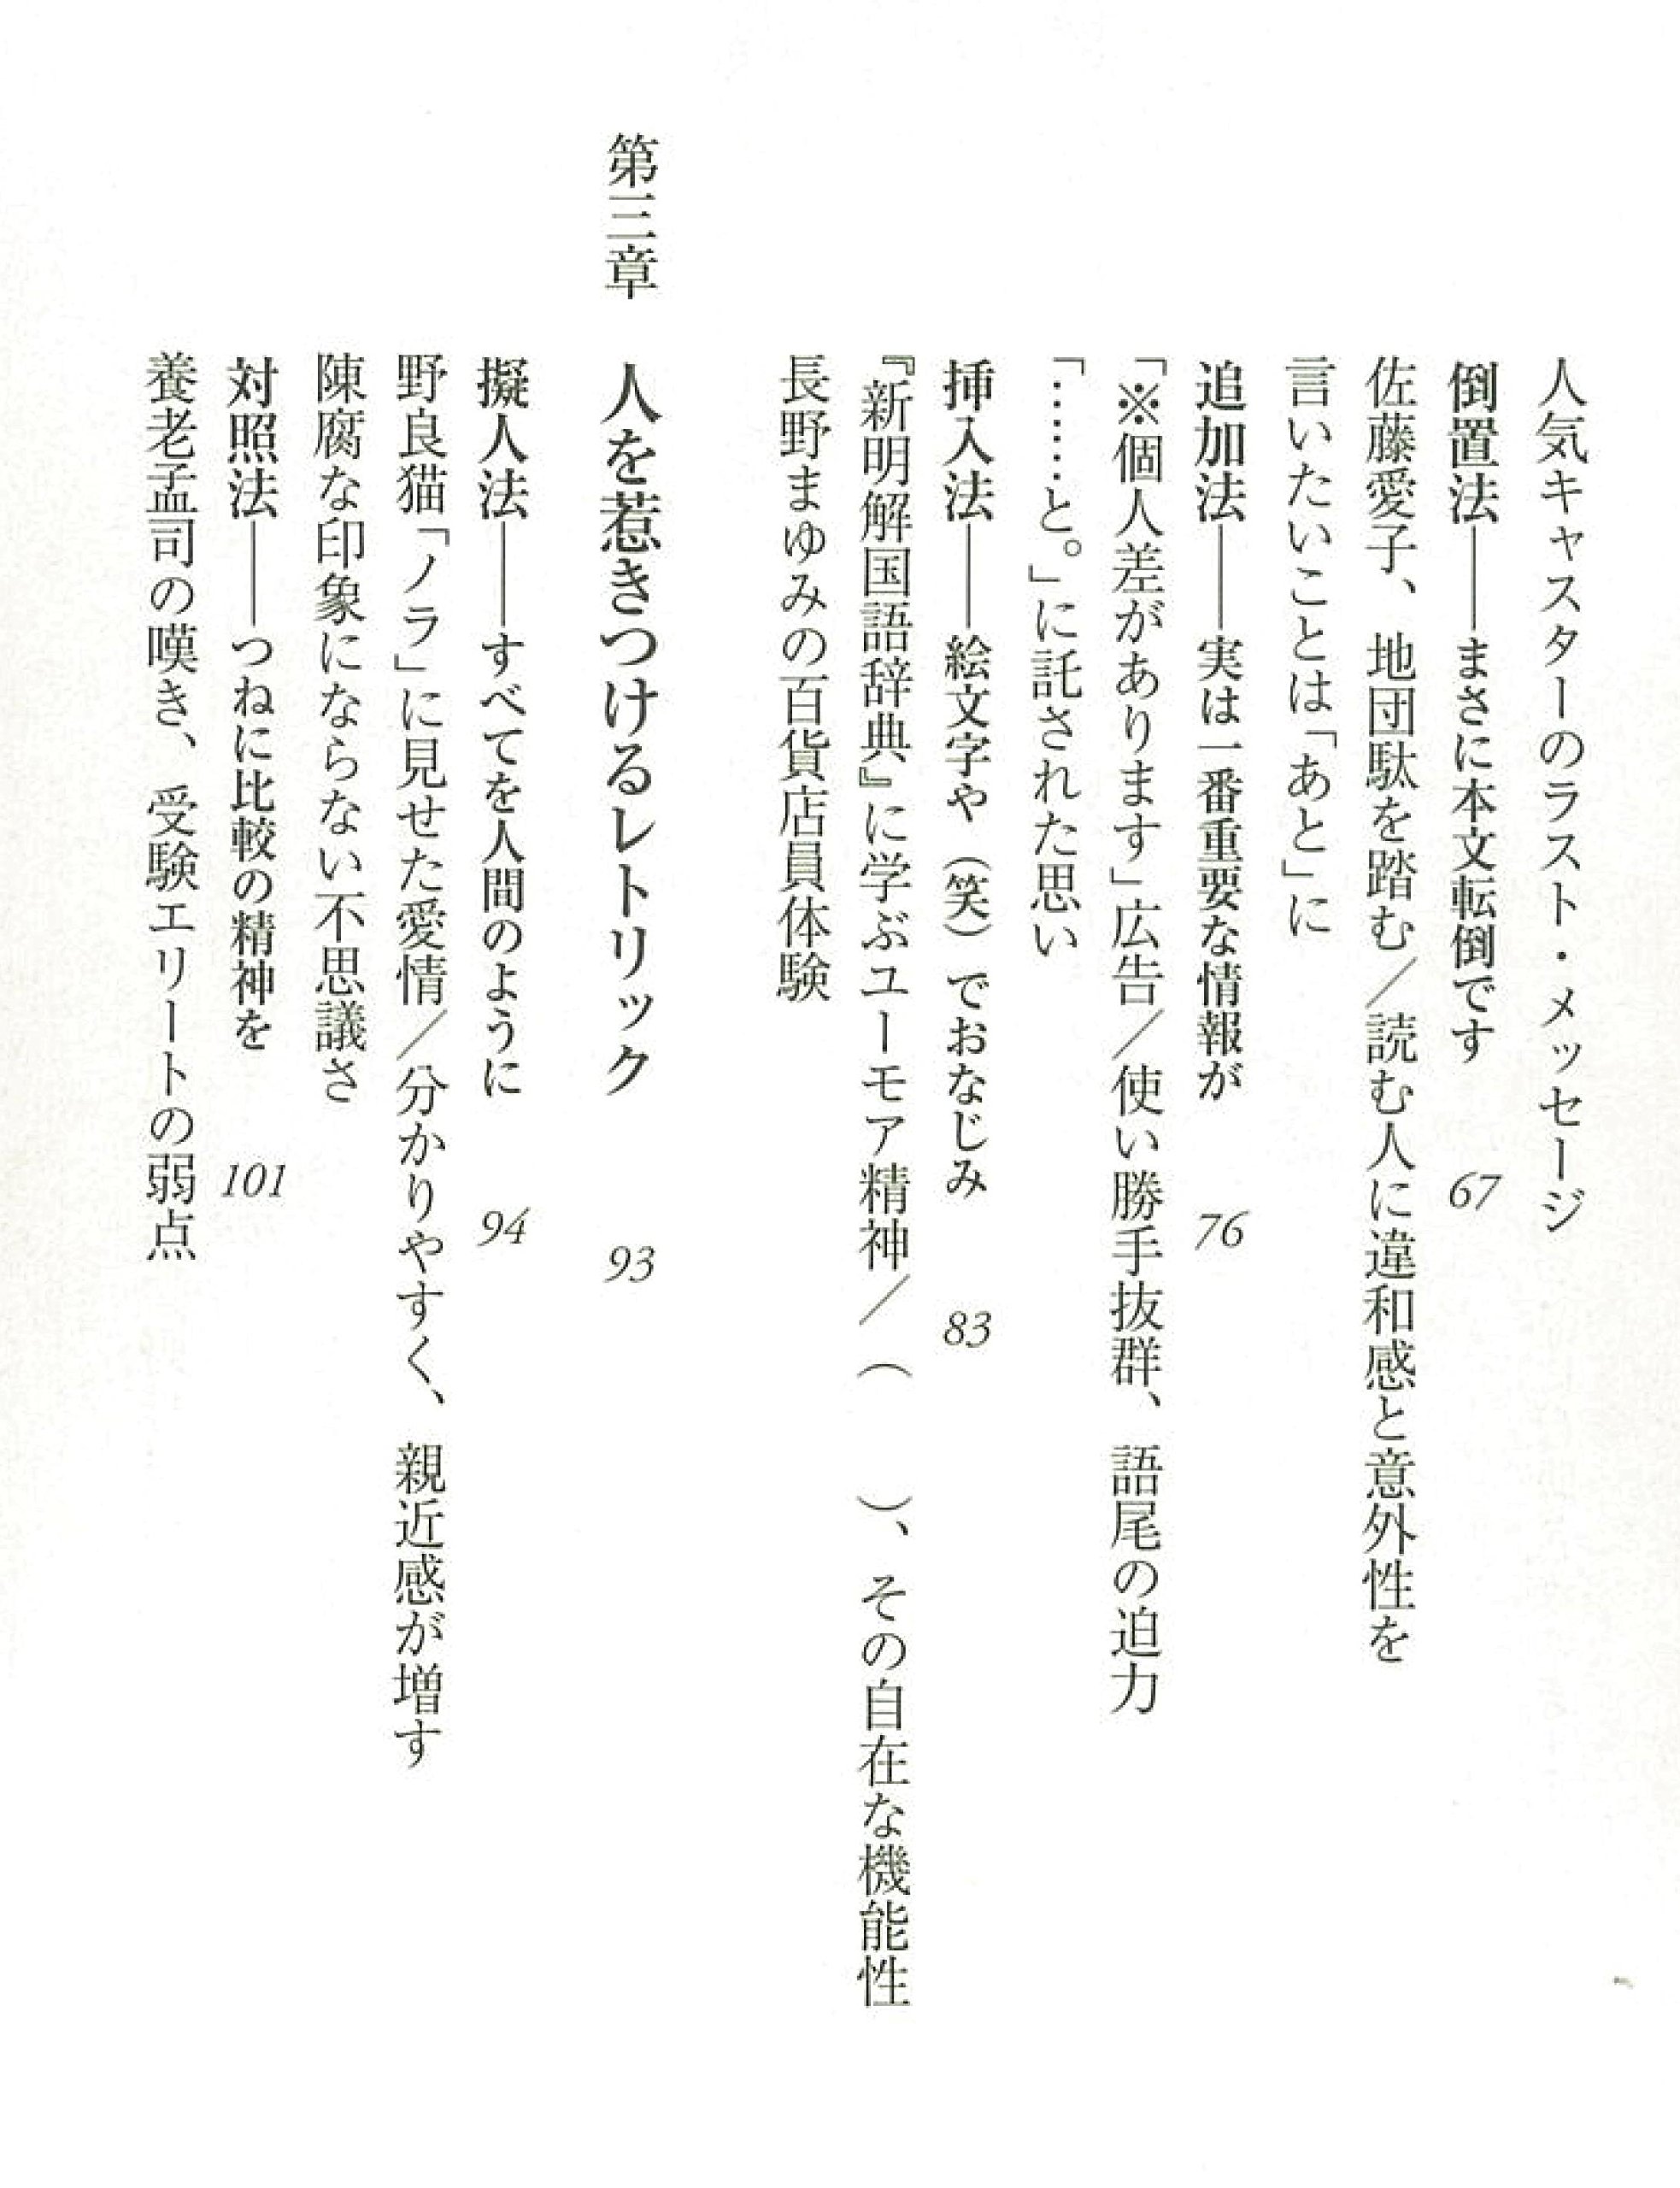 人気キャスターのラスト・メッセージ
倒置法――まさに本文転倒です 67
佐藤愛子、地団駄を踏む／読む人に違和感と意外性を
言いたいことは「あと」に
追加法――実は一番重要な情報が 76
「※個人差があります」広告／使い勝手抜群、語尾の迫力
「……と。」に託された思い
挿入法――絵文字や（笑）でおなじみ 83
『新明解国語辞典』に学ぶユーモア精神／（　　）、その自在な機能性
長野まゆみの百貨店員体験
第三章　人を惹きつけるレトリック 93
擬人法――すべてを人間のように 94
野良猫「ノラ」に見せた愛情／分かりやすく、親近感が増す
陳腐な印象にならない不思議さ
対照法――つねに比較の精神を 101
養老孟司の嘆き、受験エリートの弱点